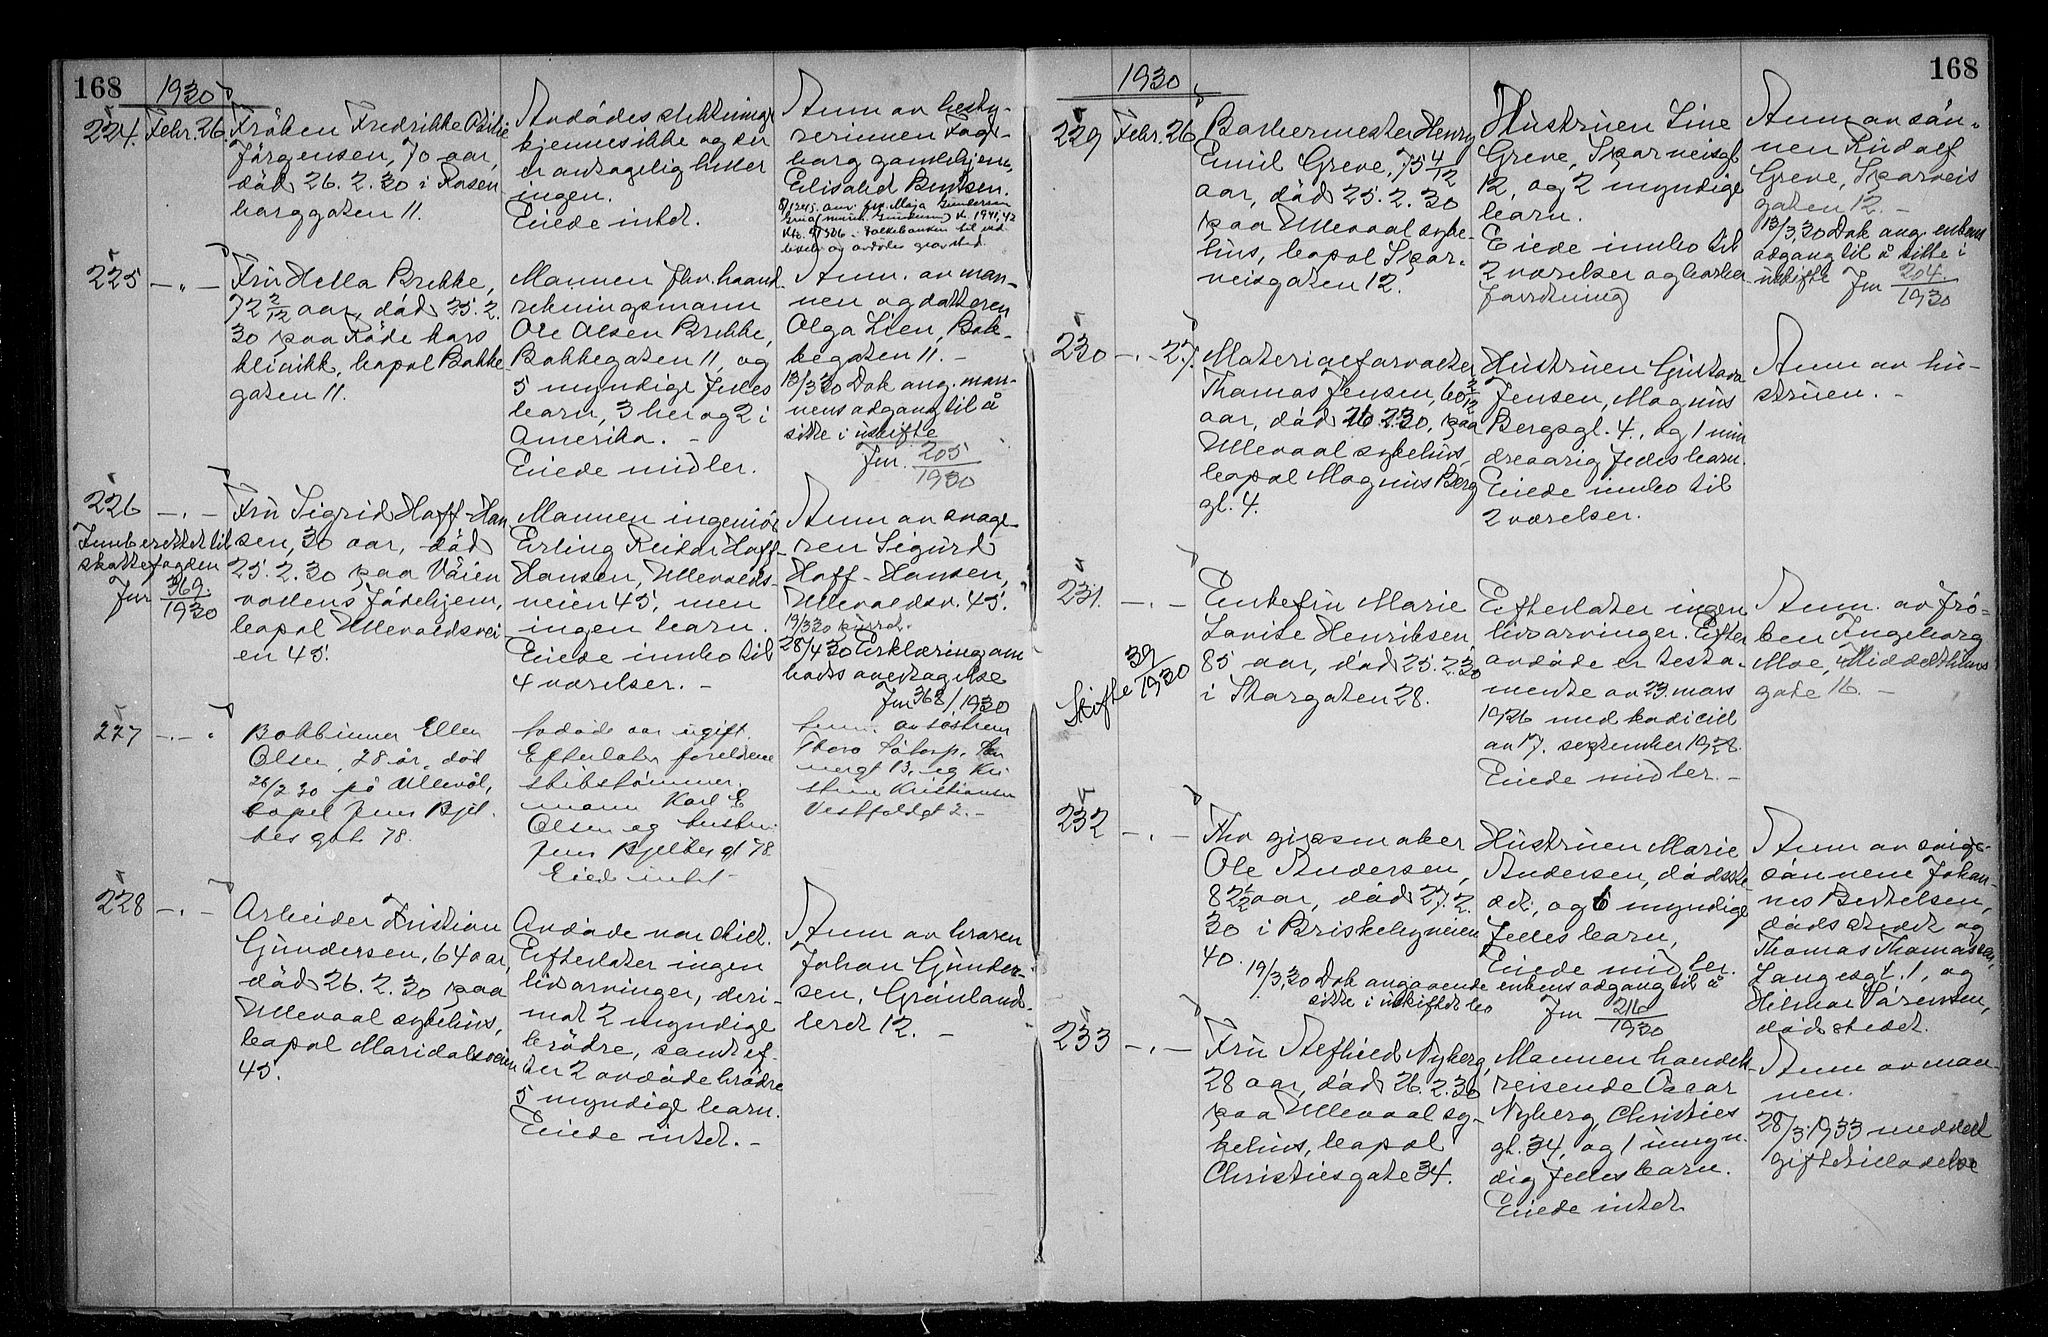 168
1930
224. Febr. 26.
Frøken Fredrikke
Jørgensen, 70 aar,
død 26.2.30 i Rosen
borggaten 11.
Avdødes slektninge
kjennes ikke og der
er antagelig heller
ingen.
Eiede intet.
Anm av besty-
rerinnen Fager-
borg gamlehjem,
Elisabed Berntsen.
225 —"—
Fru Hella Brekke,
72 2/12 aar, død 25.2.
30 paa Røde kors
klinikk, bopæl Bakke
gaten 11.
Mannen fhv. haand-
rekningsmann
Ole Olsen Brekke,
Bakkegaten 11, og
5 myndige felles
barn, 3 her og 2 i
Amerika. -
Eiede midler.
Anm. av man-
nen og datteren
Olga Lien, Bak-
kegaten 11. -
13/3 30 Dok ang. man-
nens adgang til å
sitte i uskifte
Jnr. 205/1930
226 —"—
Innberettet til
skattefogden
Jnr 369/1930
Fru Sigrid Hoff-Han
sen, 30 aar, død
25.2.30 paa Våien
vollens fødehjem,
bopæl Ullevoldsvei
en 45.
Mannen ingeniør
Erling Reidar Hoff-
Hansen, Ullevolds-
veien 45, men
ingen barn.
Eiede innbo til
4 værelser. -
Anm av svoge-
ren Sigurd
Hoff-Hansen,
Ullevoldsv. 45.
28/4 30 Erklæring om
bods overtagelse
Jnr 368/1930
227 —"—
Bokbinner Ellen
Olsen, 28 år, død
26/2 30 på Ullevål,
bopæl Jens Bjel-
kes gate 78.
Avdøde var ugift.
Efterlater foreldrene
skibstømmer-
mann Karl E
Olsen og hustru
Jens Bjelkes gt 78.
Eiede intet -
Anm. av søstrene
Thora
13, og Kri-
stine Kristiansen
Vestfoldgt 2. -
228 —"—
Arbeider Kristian
Gundersen, 64 aar,
død 26.2.30 paa
Ullevaal sykehus,
bopæl Maridalsveien
45.
Avdøde var skilt.
Efterlater ingen
livsarvinger, deri-
mot 2 myndige
brødre, samt ef-
ter 2 avdøde brødre
5 myndige barn.
Eiede intet. -
Anm av broren
Johan Gunder-
sen, Grønland
leret 12. -
168
1930
229 Febr. 26
Barbermester Henry
Emil Greve, 75 4/12
aar, død 25.2.30
paa Ullevaal syke-
hus, bopæl Spor-
veisgaten 12.
Hustruen Line
Greve, Sporveisgt
12, og 2 myndige
barn.
Eiede innbo til
2 værelser og barber
forretning
Anm av søn-
nen Rudolf
Greve, Sporveis
gaten 12. -
13/3.30 Dok ang. enkens
adgang til å sitte i
uskifte Jnr 204/1930
230 —"— 27.
Materialforvalter
Thomas Jensen, 60 2/12
aar, død 26.2.30, paa
Ullevaal sykehus,
bopæl Magnus Berg
gt. 4.
Hustruen Gustava
Jensen, Magnus
Bergsgt. 4., og 1 min
dreaarig felles barn.
Eiede innbo til
2 værelser.
Anm av hu-
struen. -
231. —"—
Skifte 39/1930
Enkefru Marie
Lovise Henriksen
85 aar, død 25.2.30
i Thorgaten 28.
Efterlater ingen
livsarvinger. Efter
avdøde er testa-
mente av 23 mars
1926 med kodicill
av 17. september 1928.
Eiede midler. -
Anm. av frø-
ken Ingeborg
Moe, Middelthuns
gate 16. -
232 —"—
Fhv gipsmaker
Ole Andersen,
82 1/2 aar, død 27.2.
30 i Briskebyveien
40.
Hustruen Marie
Andersen, dødsste-
det, og 6 myndige
felles barn,
Eiede midler.
19/3.30 Dok angaaende enkens adgang til å
sitte i uskiftet bo Jnr 216/1930
Anm av svige-
sønnene Johan-
nes Bertelsen,
dødsstedet og
Thomas Thomassen,
Langesgt. 1, og
Hilmar Sørensen,
dødsstedet.
233 —"—
Fru Nyberg,
28 aar, død 26.2.30
paa Ullevaal sy-
kehus, bopæl
Christiesgate 34.
Mannen handels-
reisende Oscar
Nyberg, Christies
gt. 34, og 1 umyn-
dig felles barn.
Eiede intet
Anm av man-
nen.
28/3.1933 meddelt
giftetilladelse